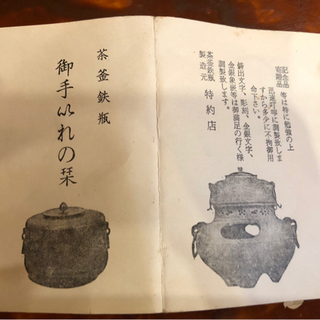 茶釜鉄瓶
御手いれの栞
記念品
宿題品 等は特に勉強の上
迅速叮寧に調製致しま
すから多少に不拘御用
命下さい。
鋳出文字、彫刻、金銀文字、
金銀象嵌等は御満足の行く様
調製致します。
茶釜鉄瓶
製造元 特約店